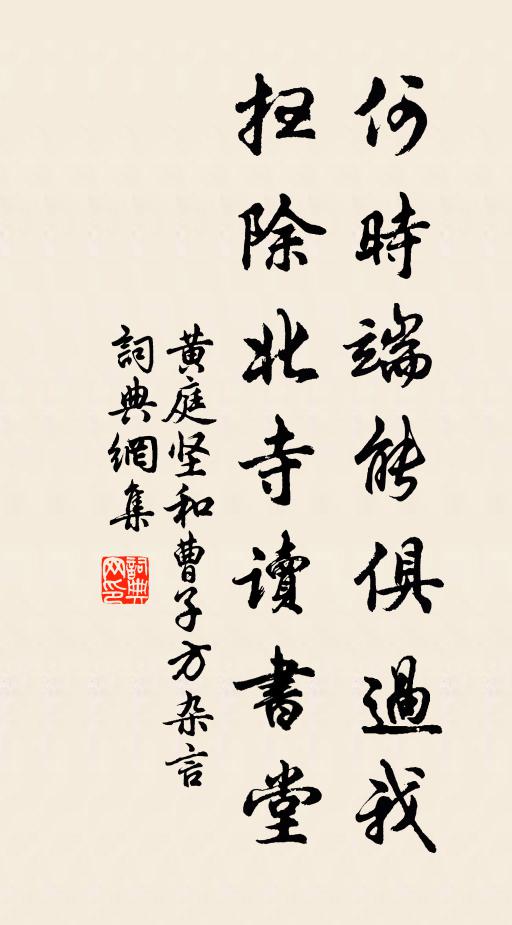 何時端能俱過我
掃除北寺讀書堂
黄庭坚和曹子方杂言
詞典網集
詞典网印